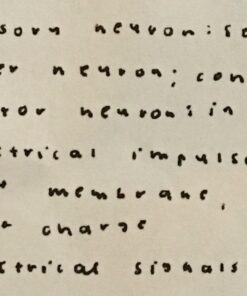 sory neuron: se
er neuron; con
tor neuron: in
ctrical impulse
membrane,
charge
ctrical signals